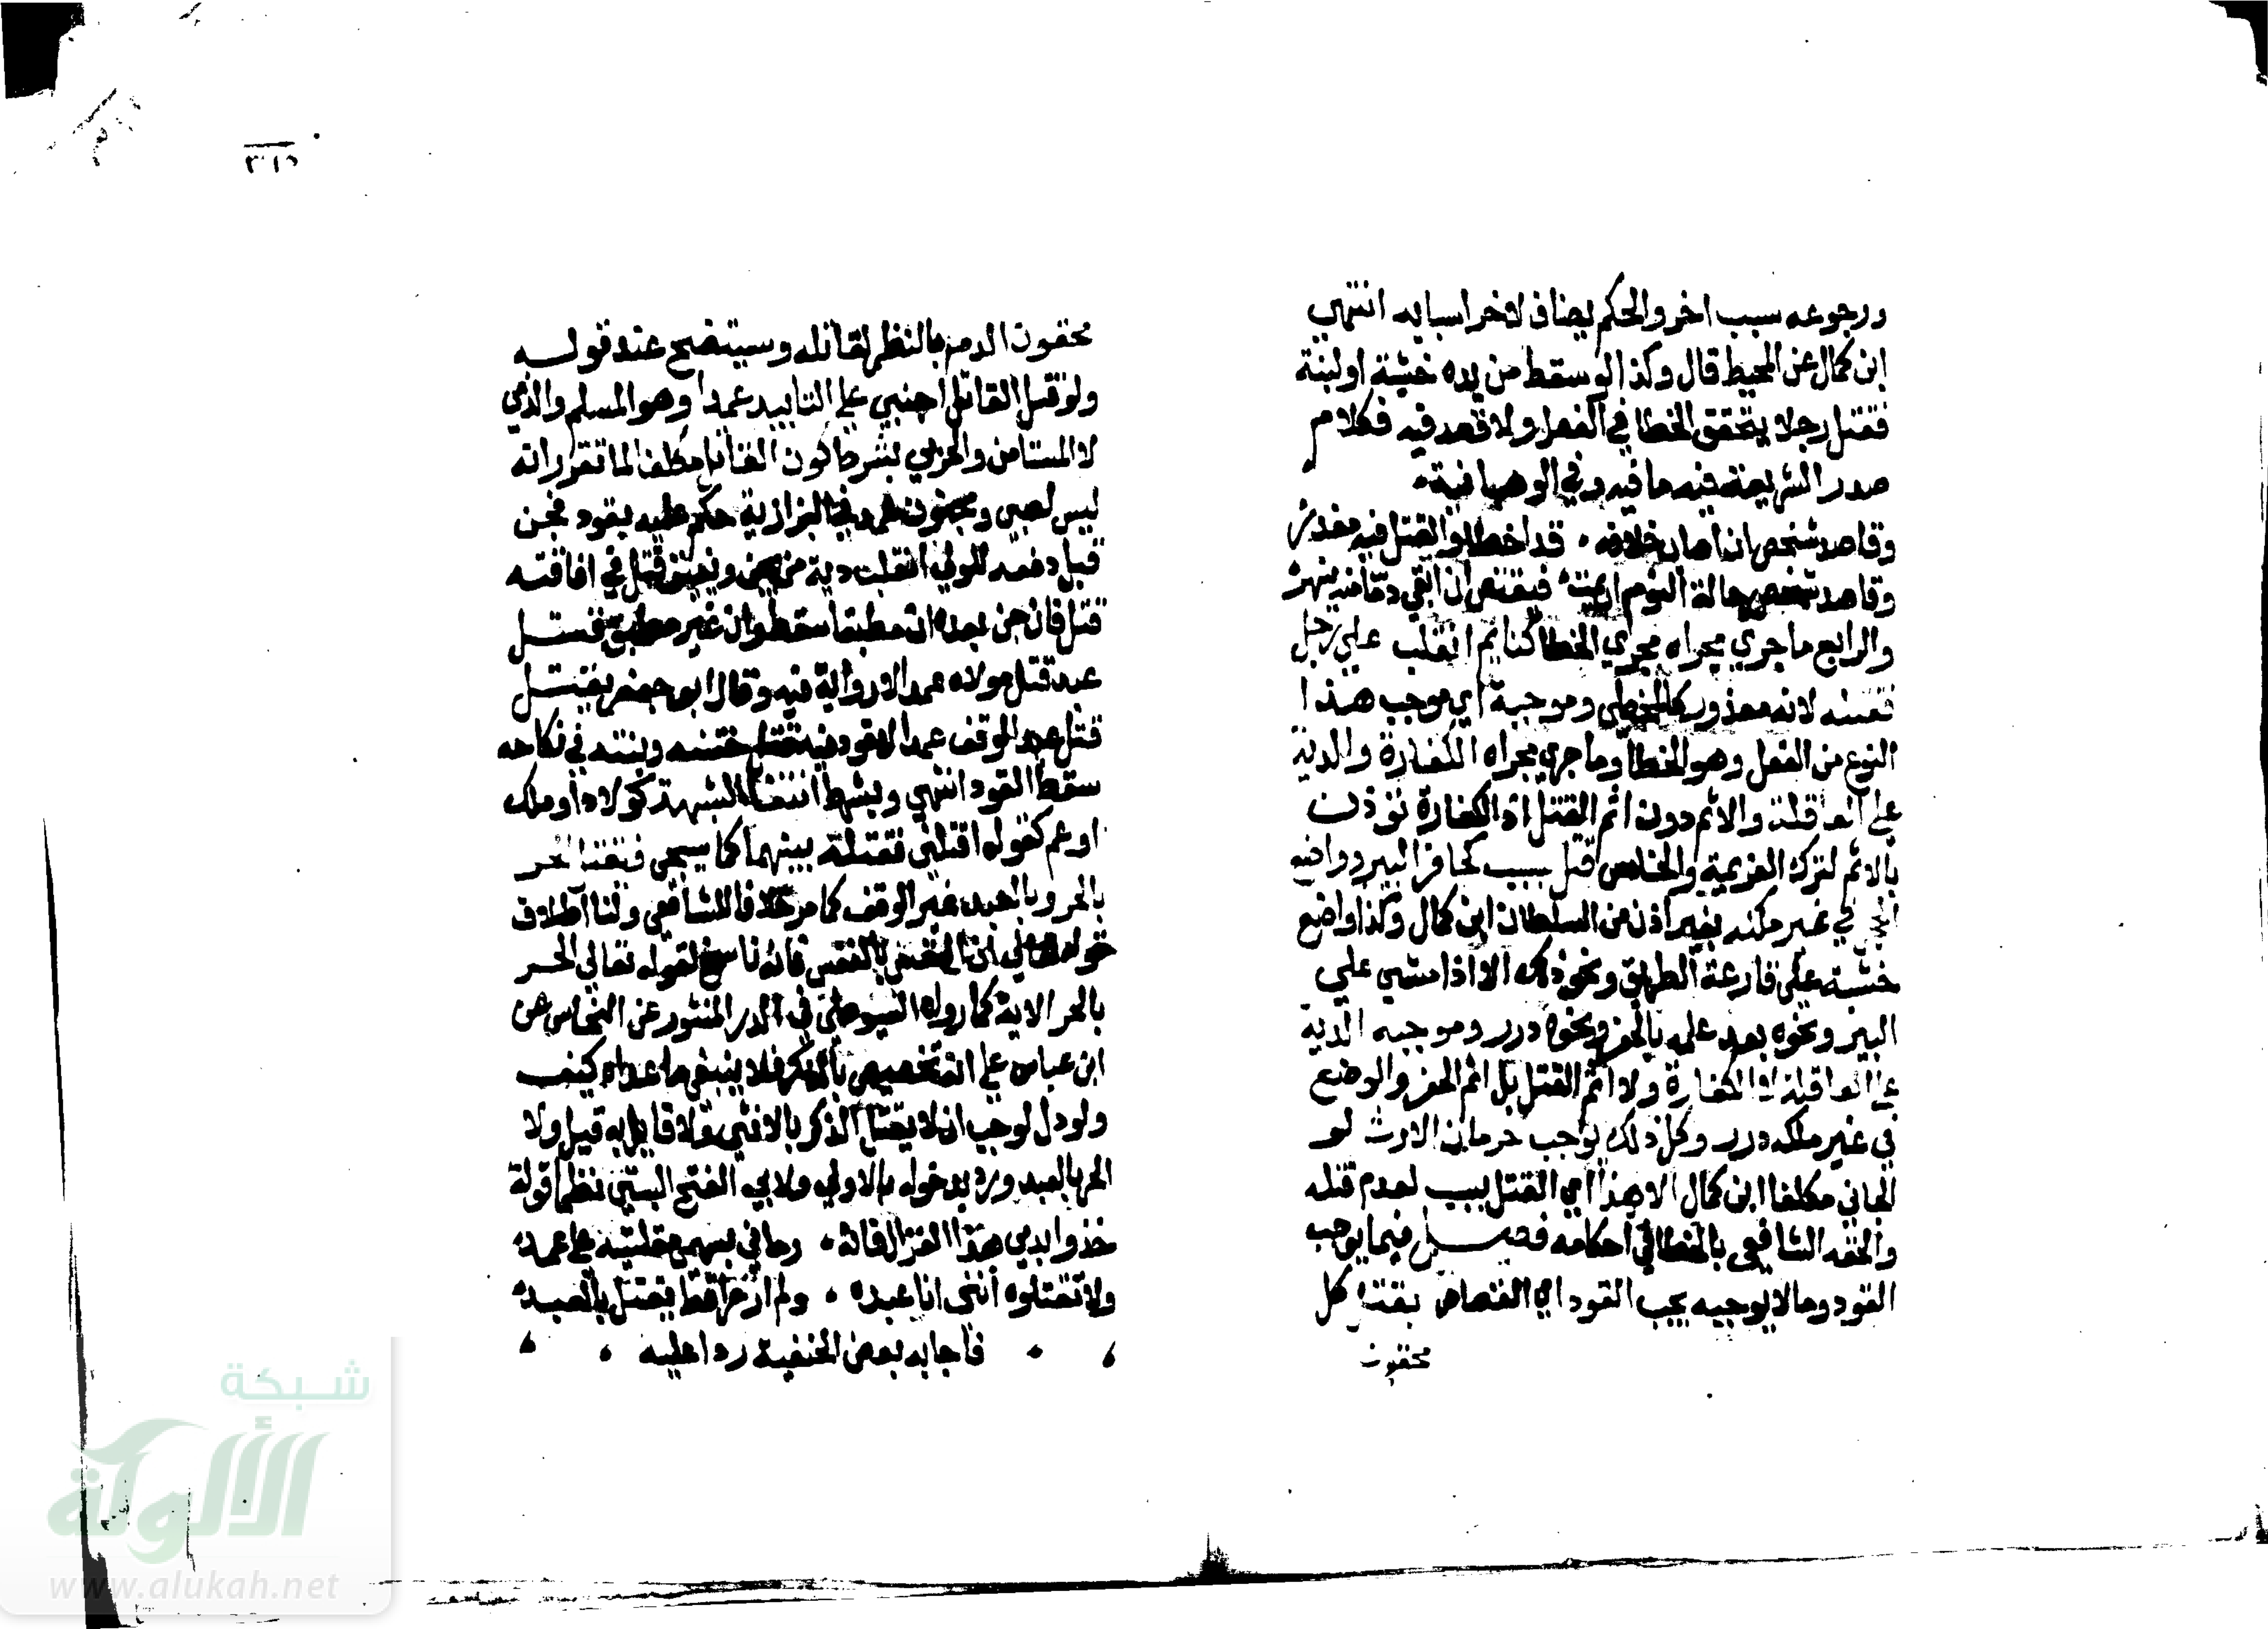 ورجوعه سبب اخر والحكم يضاف لاخر اسبابه انتهى
ابن كمال عن المحيط قال وكذا لو سقط من يده خشبة او لبنة
فقتل رجلا يتحقق الخطا في الفعل ولا قصد فيه فكلام
صدر الشريعة فيه ما فيه وفي الوهبانية
وقاصد شخص ان اصاب خلافه قد اخطا والقتل فيه معذر
وقاصد شخص حالة النوم ان فيقتص ان ابقي دما منه ينهر
والرابع ما جري مجراه مجري الخطا كنايم انقلب علي رجل
فقتله لانه معذور كالمخطي وموجبه اي موجب هذا
النوع من الفعل وهو الخطا وما جري مجراه الكفارة والدية
علي العاقلة والاثم دون اثم القتل اذ الكفارة توذن
بالاثم لترك العزيمة والخامس قتل بسبب كحافر البير وواضع
الحجر في غير ملكه بغير اذن من السلطان ابن كمال وكذا واضع
خشبة علي قارعة الطريق ونحو ذلك الا اذا مشي علي
البير ونحوه بعد علمه بالحفر ونحوه درر وموجبه الدية
علي العاقلة لا الكفارة ولا اثم القتل بل اثم الحفر والوضع
في غير ملكه درر وكل ذلك يوجب حرمان الارث لو
الجاني مكلفا ابن كمال الا هذا اي القتل بسبب لعدم قتله
والحقه الشافعي بالخطا في احكامه فصل فيما يوجب
القود وما لا يوجبه يجب القود اي القصاص بقتل كل
محقون
٣١٥
محقون الدم بالنظر لقاتله وسيتضح عند قوله
ولو قتل القاتل اجنبي علي التابيد عمدا وهو المسلم والذمي
لا المستامن والحربي بشرط كون القاتل مكلفا لما تقرر انه
ليس لصبي ومجنون عمد وفي البزازية حكم عليه بقود فجن
قبل دفعه للولي انقلبت دية من يجن ويفيق قتل في افاقته
قتل فان جن بعده ان مطبقا سقط وان غير مطبق قتل
عبد قتل مولاه عمدا لا رواية فيه وقال ابو جعفر يقتل
قتل عبد الوقف عمدا لا قود فيه قتل ختنه وبنته في نكاحه
سقط القود انتهى وبشرط انتفا الشبهة كولاد او ملك
او عم كقوله اقتلني فقتله بينهما كما سيجي فيقتل الحر
بالحر وبالعبد غير الوقف كما مر خلافا للشافعي ولنا اطلاق
قوله تعالي ان النفس بالنفس فانه ناسخ لقوله تعالي الحر
بالحر الاية كما رواه السيوطي في الدر المنثور عن النحاس عن
ابن عباس علي انه تخصيص بالذكر فلا ينفي ما عداه كيف
ولو دل لوجب ان لا يقتل الذكر بالانثي ولا قايل به قيل ولا
الحر بالعبد ورد بدخوله بالاولي ولابي الفتح البستي نظما قوله
خذوا بدمي هذا الغزال فانه رماني بسهم مقلتيه علي عمد
ولا تقتلوه انني انا عبده ولم ار حرا قط يقتل بالعبد
فاجابه بعض الحنفية ردا عليه
شبكة
الألوكة
www.alukah.net